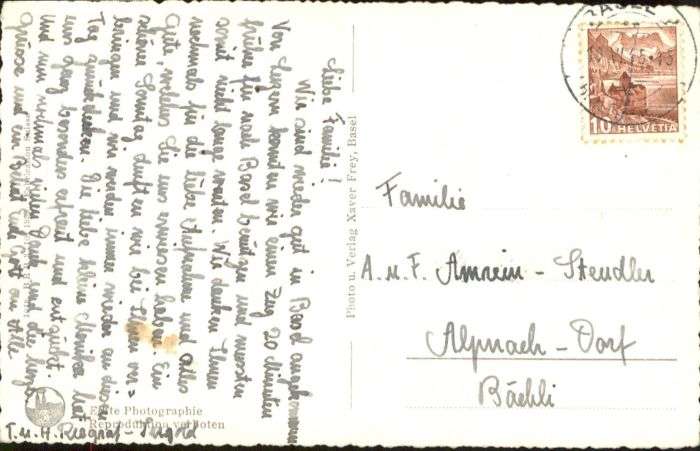 Liebe Familie!
Wir sind wieder gut in Basel angekommen
Von Luzern konnten wir einen Zug 20 Minuten
früher für nach Basel benützen und mussten
somit nicht lange warten. Wir danken Ihnen
nochmals für die liebe Aufnahme und alles
Gute, welches Sie uns erwiesen haben. Ein
schöner Sonntag durften wir bei Ihnen ver-
bringen und wir werden immer wieder an diesen
Tag zurückdenken. Die liebe kleine Monika hat
uns ganz besonders erfreut und entzückt.
Und nun nochmals vielen Dank und die
Grüsse und ein Alle
T. u. H. Riegraf-
Echte Photographie
Reproduktion verboten
Photo u. Verlag Xaver Frey, Basel
BASEL
10 HELVETIA
Familie
A. u. F. Amrein - Stendler
Alpnach - Dorf
Bächli